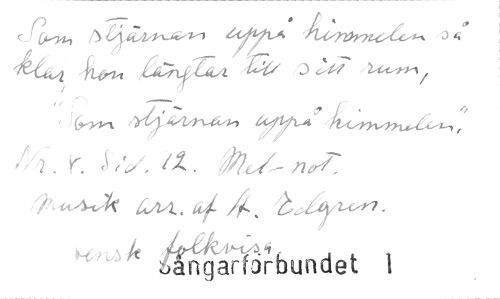 Som stjärnan uppå himmelen så
klar, hon längtar till sitt rum,
"Som stjärnan uppå himmelen".
Nr. 8. Sid. 12. Mel-not.
musik arr. af A. Edgren.
svensk folkvisa
Sångarförbundet 1